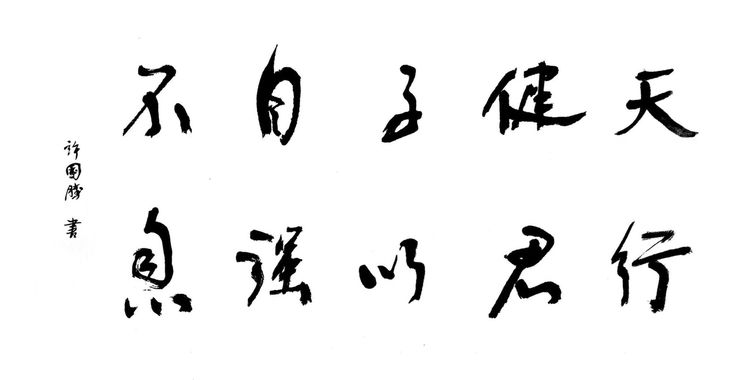 天行
健君
子以
自强
不息
许国胜 書